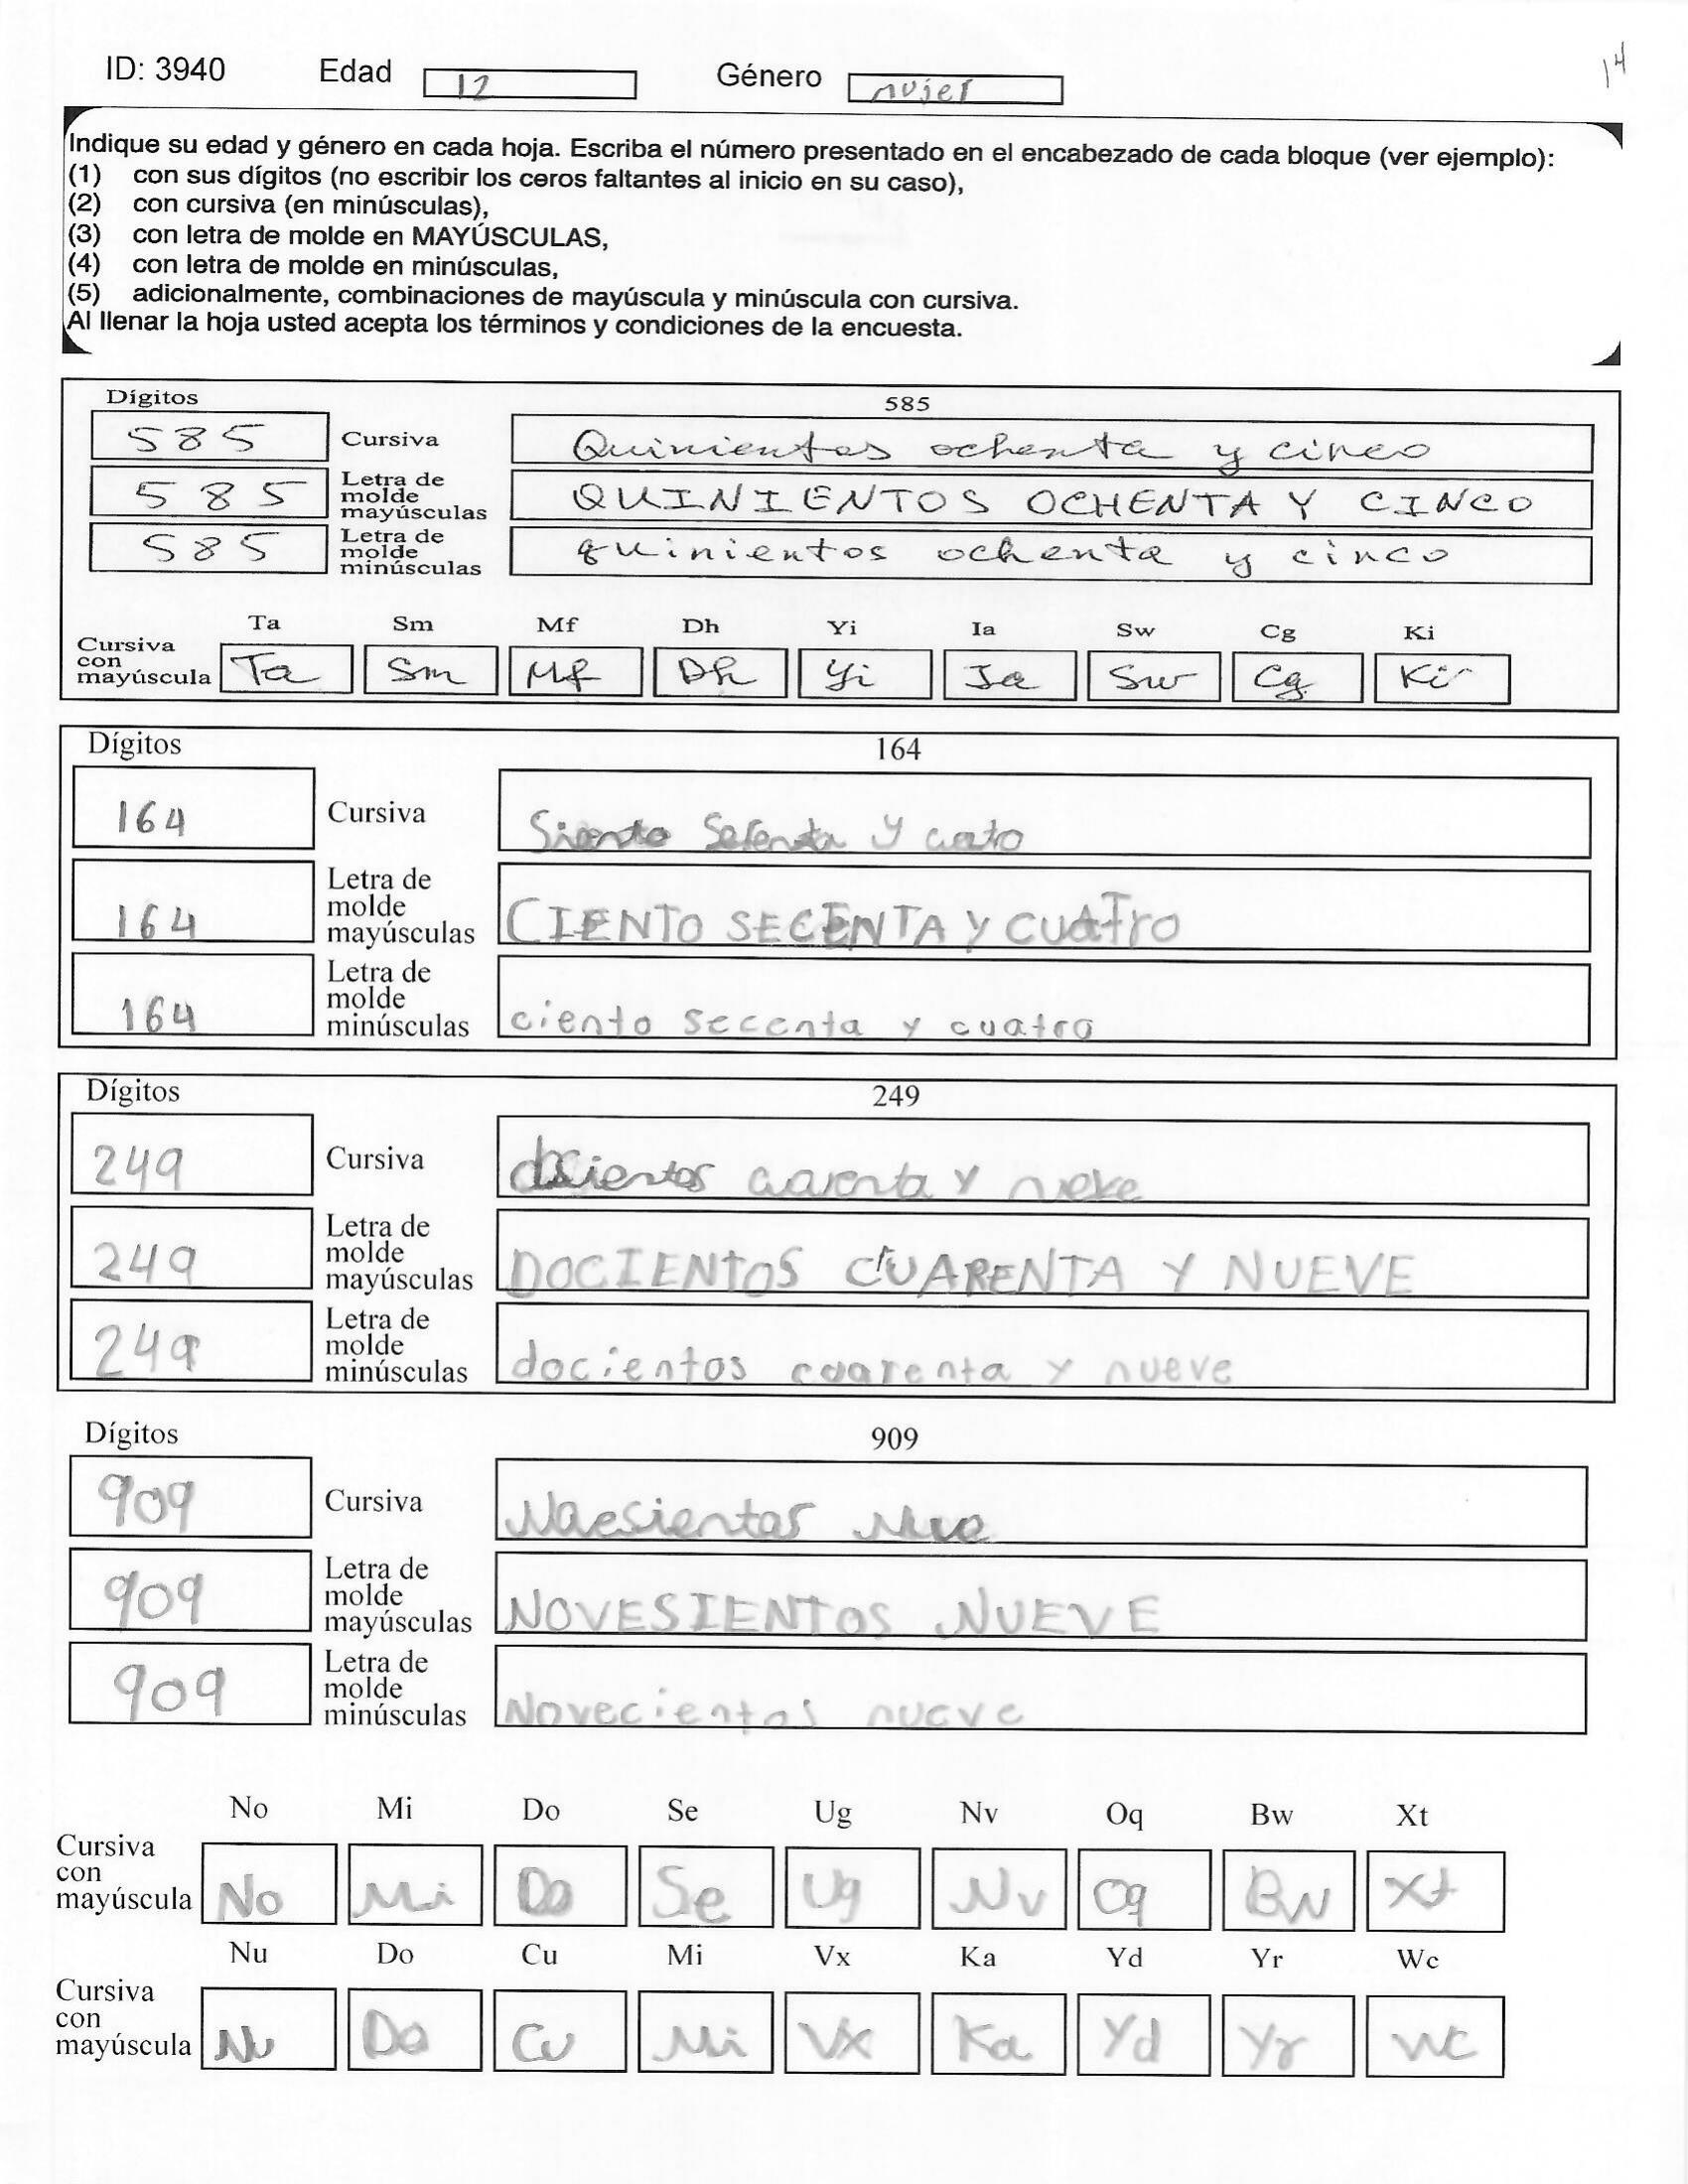 ID: 3940 Edad 12 Género mujer 14
Indique su edad y género en cada hoja. Escriba el número presentado en el encabezado de cada bloque (ver ejemplo):
(1) con sus dígitos (no escribir los ceros faltantes al inicio en su caso),
(2) con cursiva (en minúsculas),
(3) con letra de molde en MAYÚSCULAS,
(4) con letra de molde en minúsculas,
(5) adicionalmente, combinaciones de mayúscula y minúscula con cursiva.
Al llenar la hoja usted acepta los términos y condiciones de la encuesta.
Dígitos 585
585 Cursiva Quinientos ochenta y cinco
585 Letra de molde mayúsculas QUINIENTOS OCHENTA Y CINCO
585 Letra de molde minúsculas quinientos ochenta y cinco
Ta Sm Mf Dh Yi Ia Sw Cg Ki
Cursiva con mayúscula Ta Sm Mf Dh Yi Ia Sw Cg Ki
Dígitos 164
164 Cursiva Siento y
164 Letra de molde mayúsculas CIENTO SECENTA Y CUATrO
164 Letra de molde minúsculas ciento secenta y cuatro
Dígitos 249
249 Cursiva y
249 Letra de molde mayúsculas DOCIENtOS CUARENTA Y NUEVE
249 Letra de molde minúsculas docientos cuarenta y nueve
Dígitos 909
909 Cursiva
909 Letra de molde mayúsculas NOVESIENTOS NUEVE
909 Letra de molde minúsculas Novecientos nueve
No Mi Do Se Ug Nv Oq Bw Xt
Cursiva con mayúscula No Mi Do Se Ug Nv Oq Bw Xt
Nu Do Cu Mi Vx Ka Yd Yr Wc
Cursiva con mayúscula Nu Do Cu Mi Vx Ka Yd Yr Wc